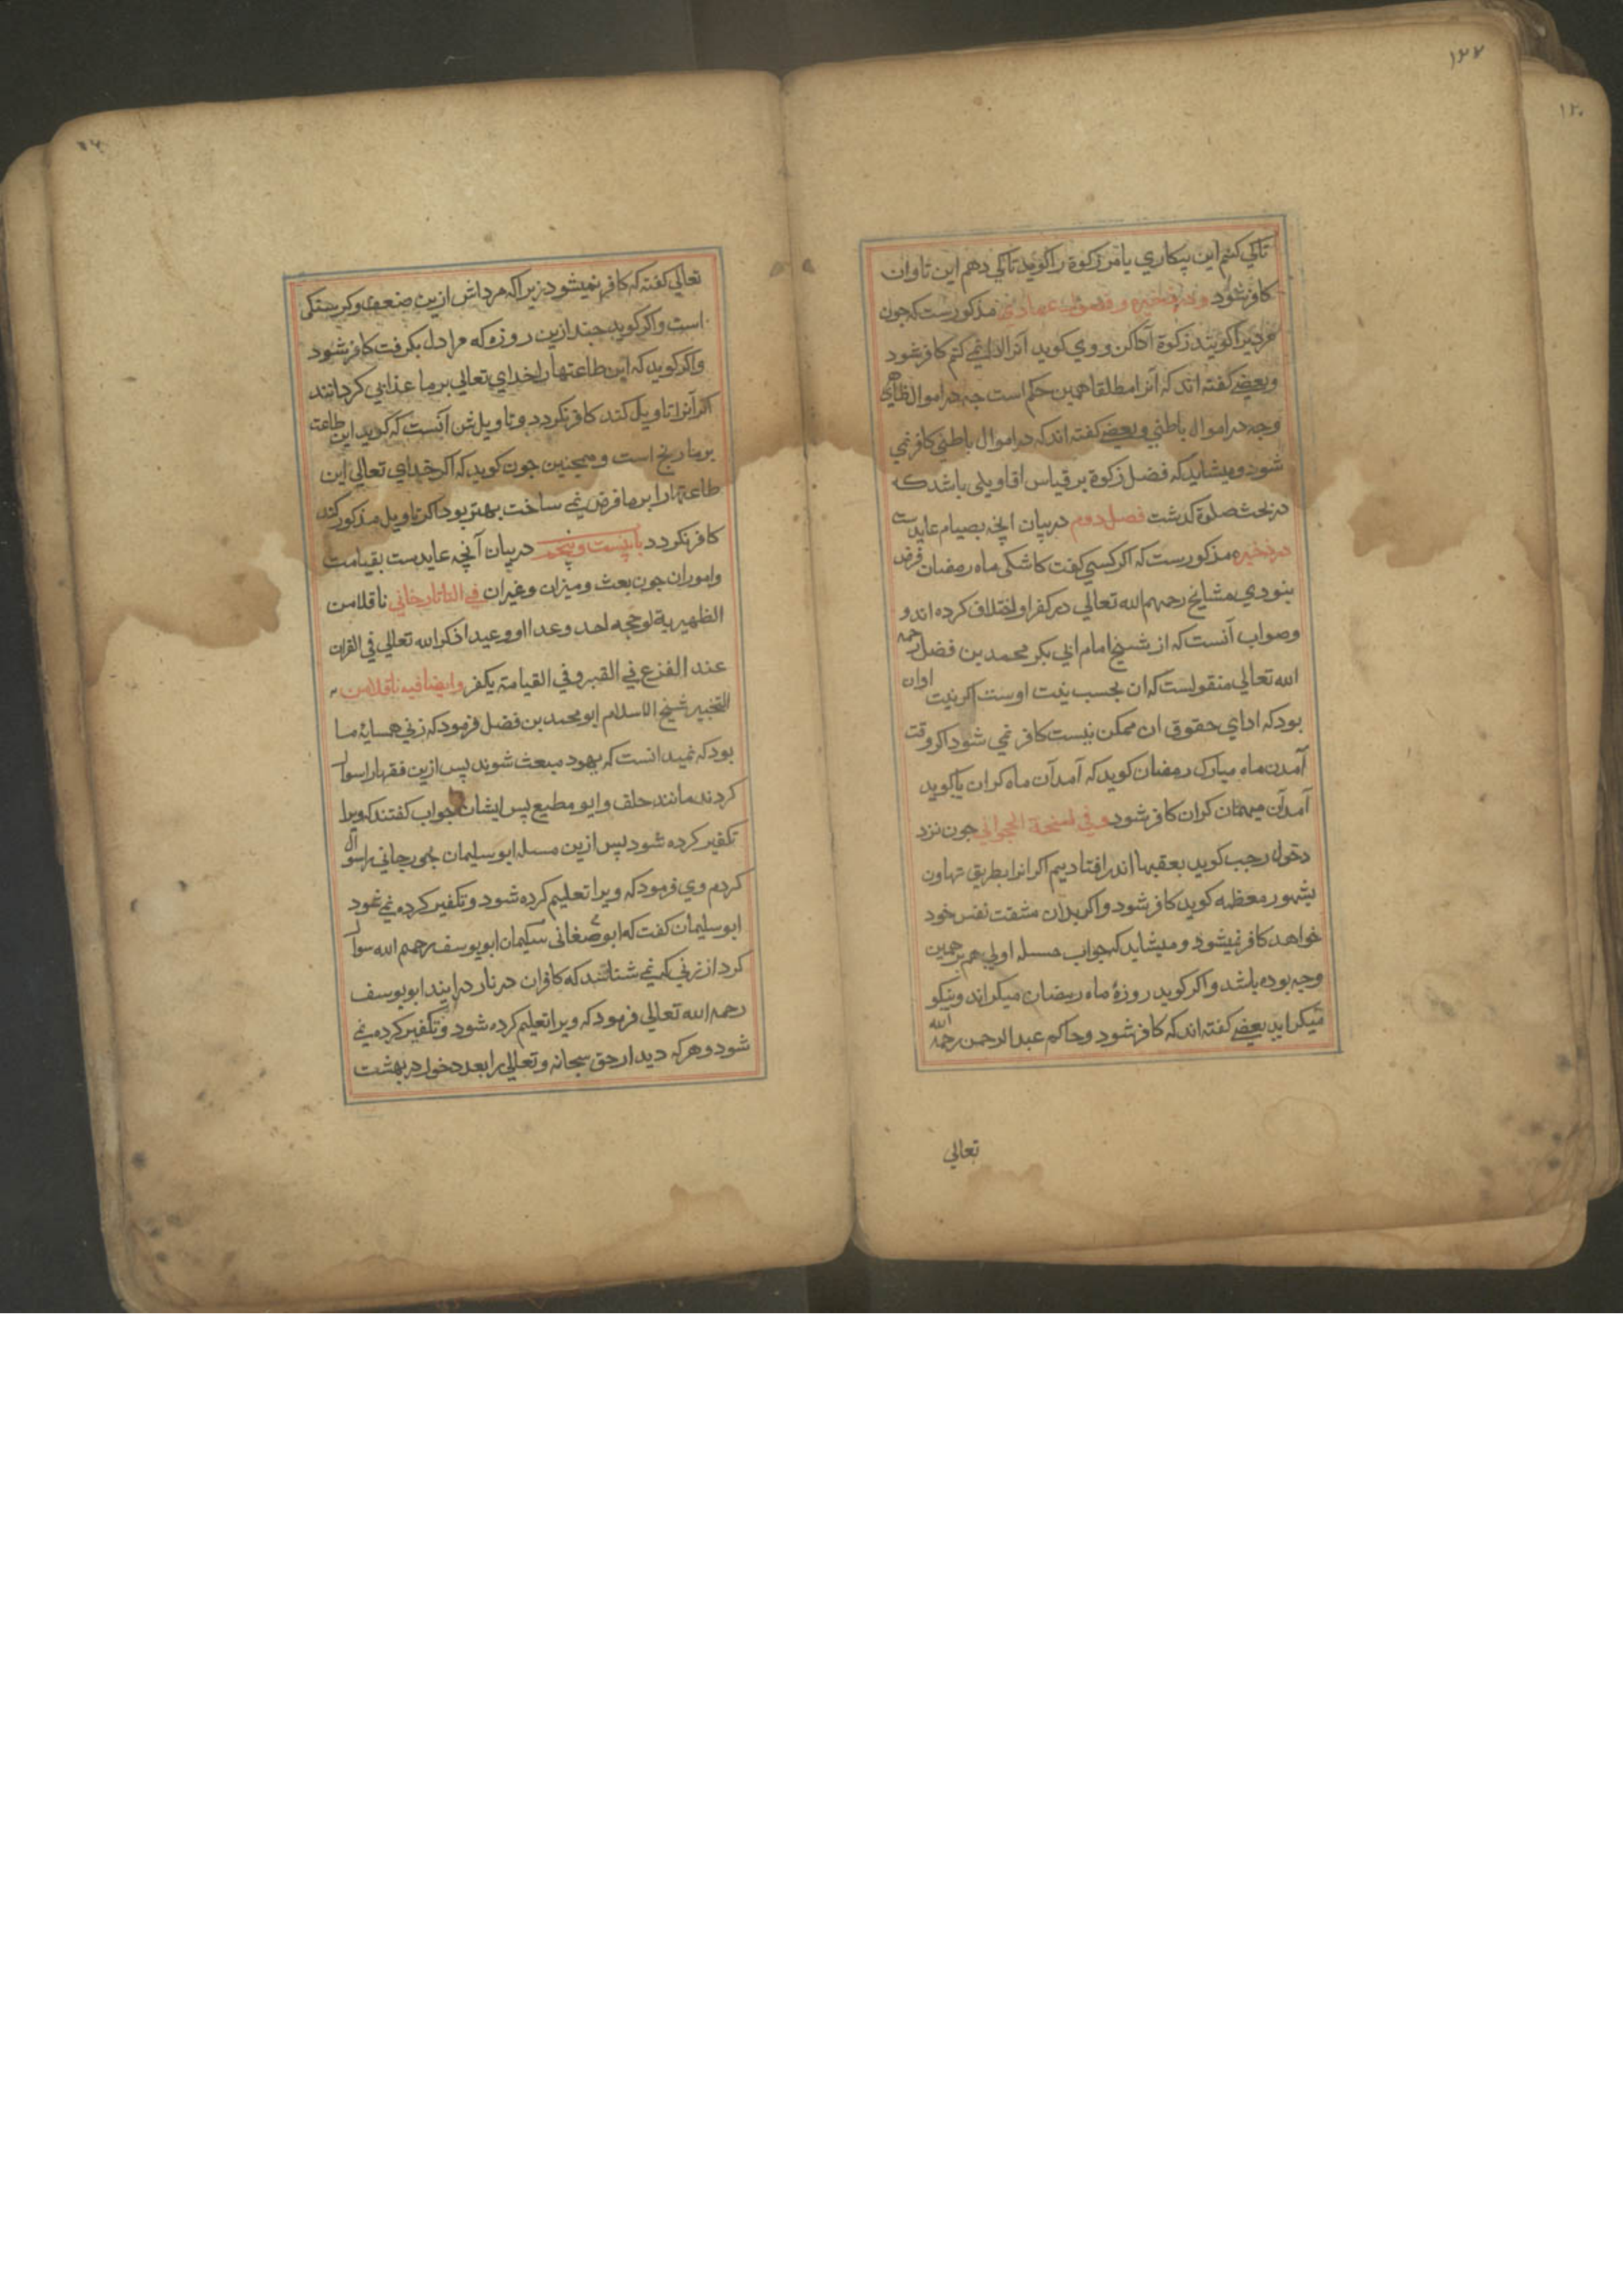 ۱۲۷
تاکی کنم این بیکاری یا مر زکوة را کوید تاکی دهم این تاوان
کافر شود و در ذخیره و فصول عمادی مذکورست که چون
مردیرا کویند زکوة ادا کن و وی کوید آنرا ادا نمی کنم کافر شود
وبعضی کفته اند که آنرا مطلقا همین حکم است چه در اموال ظاهری
وچه در اموال باطنی وبعضی کفته اند که در اموال باطنی کافر نمی
شود ومیشاید که فصل زکوة بر قیاس اقاویلی باشد که
در بحث صلوة کذشت فصل دوم در بیان انچه بصیام عایدست
در ذخیره مذکورست که اکر کسی کفت کاشکی ماه رمضان فرض
بنودی مشایخ رحمهم الله تعالی در کفر او اختلاف کرده اند و
وصواب آنست که از شیخ امام ابی بکر محمد بن فضل رحمه
الله تعالی منقولست که ان بحسب نیت اوست اکر نیت او ان
بود که ادای حقوق ان ممکن نیست کافر نمی شود اکر وقت
آمدن ماه مبارک رمضان کوید که آمد آن ماه کران یا کوید
آمد آن میهمان کران کافر شود وفی نسخة الجوانی چون نزد
دخول رجب کوید بعقبها اندر افتادیم اکر انرا بطریق تهاون
بشهور معظمه کوید کافر شود واکر بدان مشقت نفس خود
خواهد کافر نمیشود ومیشاید که جواب مسله اولی هم بر همین
وجه بوده باشد واکر کوید روزۀ ماه رمضان میکراند ونیکو
میکراید بعضی کفته اند که کافر شود وحاکم عبد الرحمن رحمه الله
تعالی
تعالی کفته که کافر نمیشود زیرا که مرداش ازین ضعف وکرسنکی
است واکر کوید چند ازین روزه که مرا دل بکرفت کافر شود
واکر کوید که این طاعتها را خدای تعالی بر ما عذابی کردانند
اکر آنرا تاویل کند کافر نکردد وتاویلش آنست که کوید این طاعت
بر ما رنج است وهمچنین چون کوید که اکر خدای تعالی این
طاعتهارا بر ما فرض نمی ساخت بهتر بود اکر تاویل مذکور کند
کافر نکردد باب بیست وپنجم در بیان آنچه عایدست بقیامت
وامور ان چون بعث ومیزان وغیر ان فی التاتارخانی ناقلا من
الظهیریة لو جحد احد وعدا او وعیدا ذکر الله تعالی فی القران
عند الفزع فی القبر وفی القیامة یکفر وایضا فیه ناقلا من
التخبیر شیخ الاسلام ابو محمد بن فضل فرمود که زنی همسایۀ ما
بود که نمیدانست که یهود مبعث شوند پس ازین فقها را سوال
کردند مانند خلف وابو مطیع پس ایشان جواب کفتند که ویرا
تکفیر کرده شود پس ازین مسله ابو سلیمان جورجانی را سوال
کردم وی فرمود که ویرا تعلیم کرده شود وتکفیر کرده نمی شود
ابو سلیمان کفت که ابو صغانی سلیمان ابو یوسف رحمهم الله سوال
کرد از زنی که نمی شناشد که کافران در نار در ایند ابو یوسف
رحمه الله تعالی فرمود که ویرا تعلیم کرده شود وتکفیر کرده نمی
شود وهر که دیدار حق سبحانه وتعالی را بعد دخول در بهشت